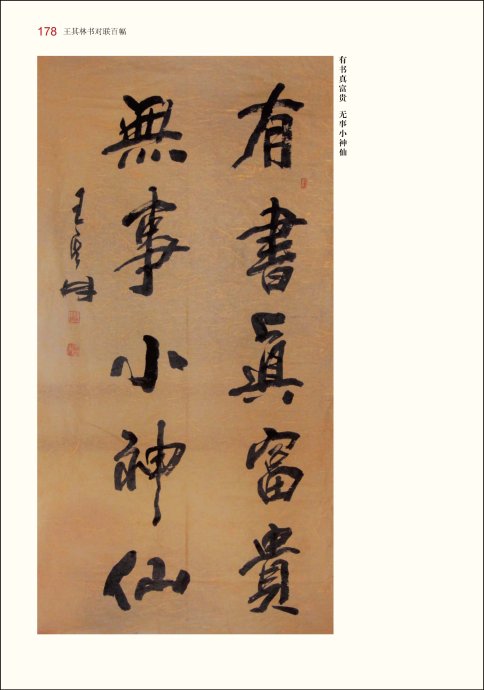 178 王其林书对联百幅
有书真富贵 无事小神仙
有書真富貴
無事小神仙
王其林